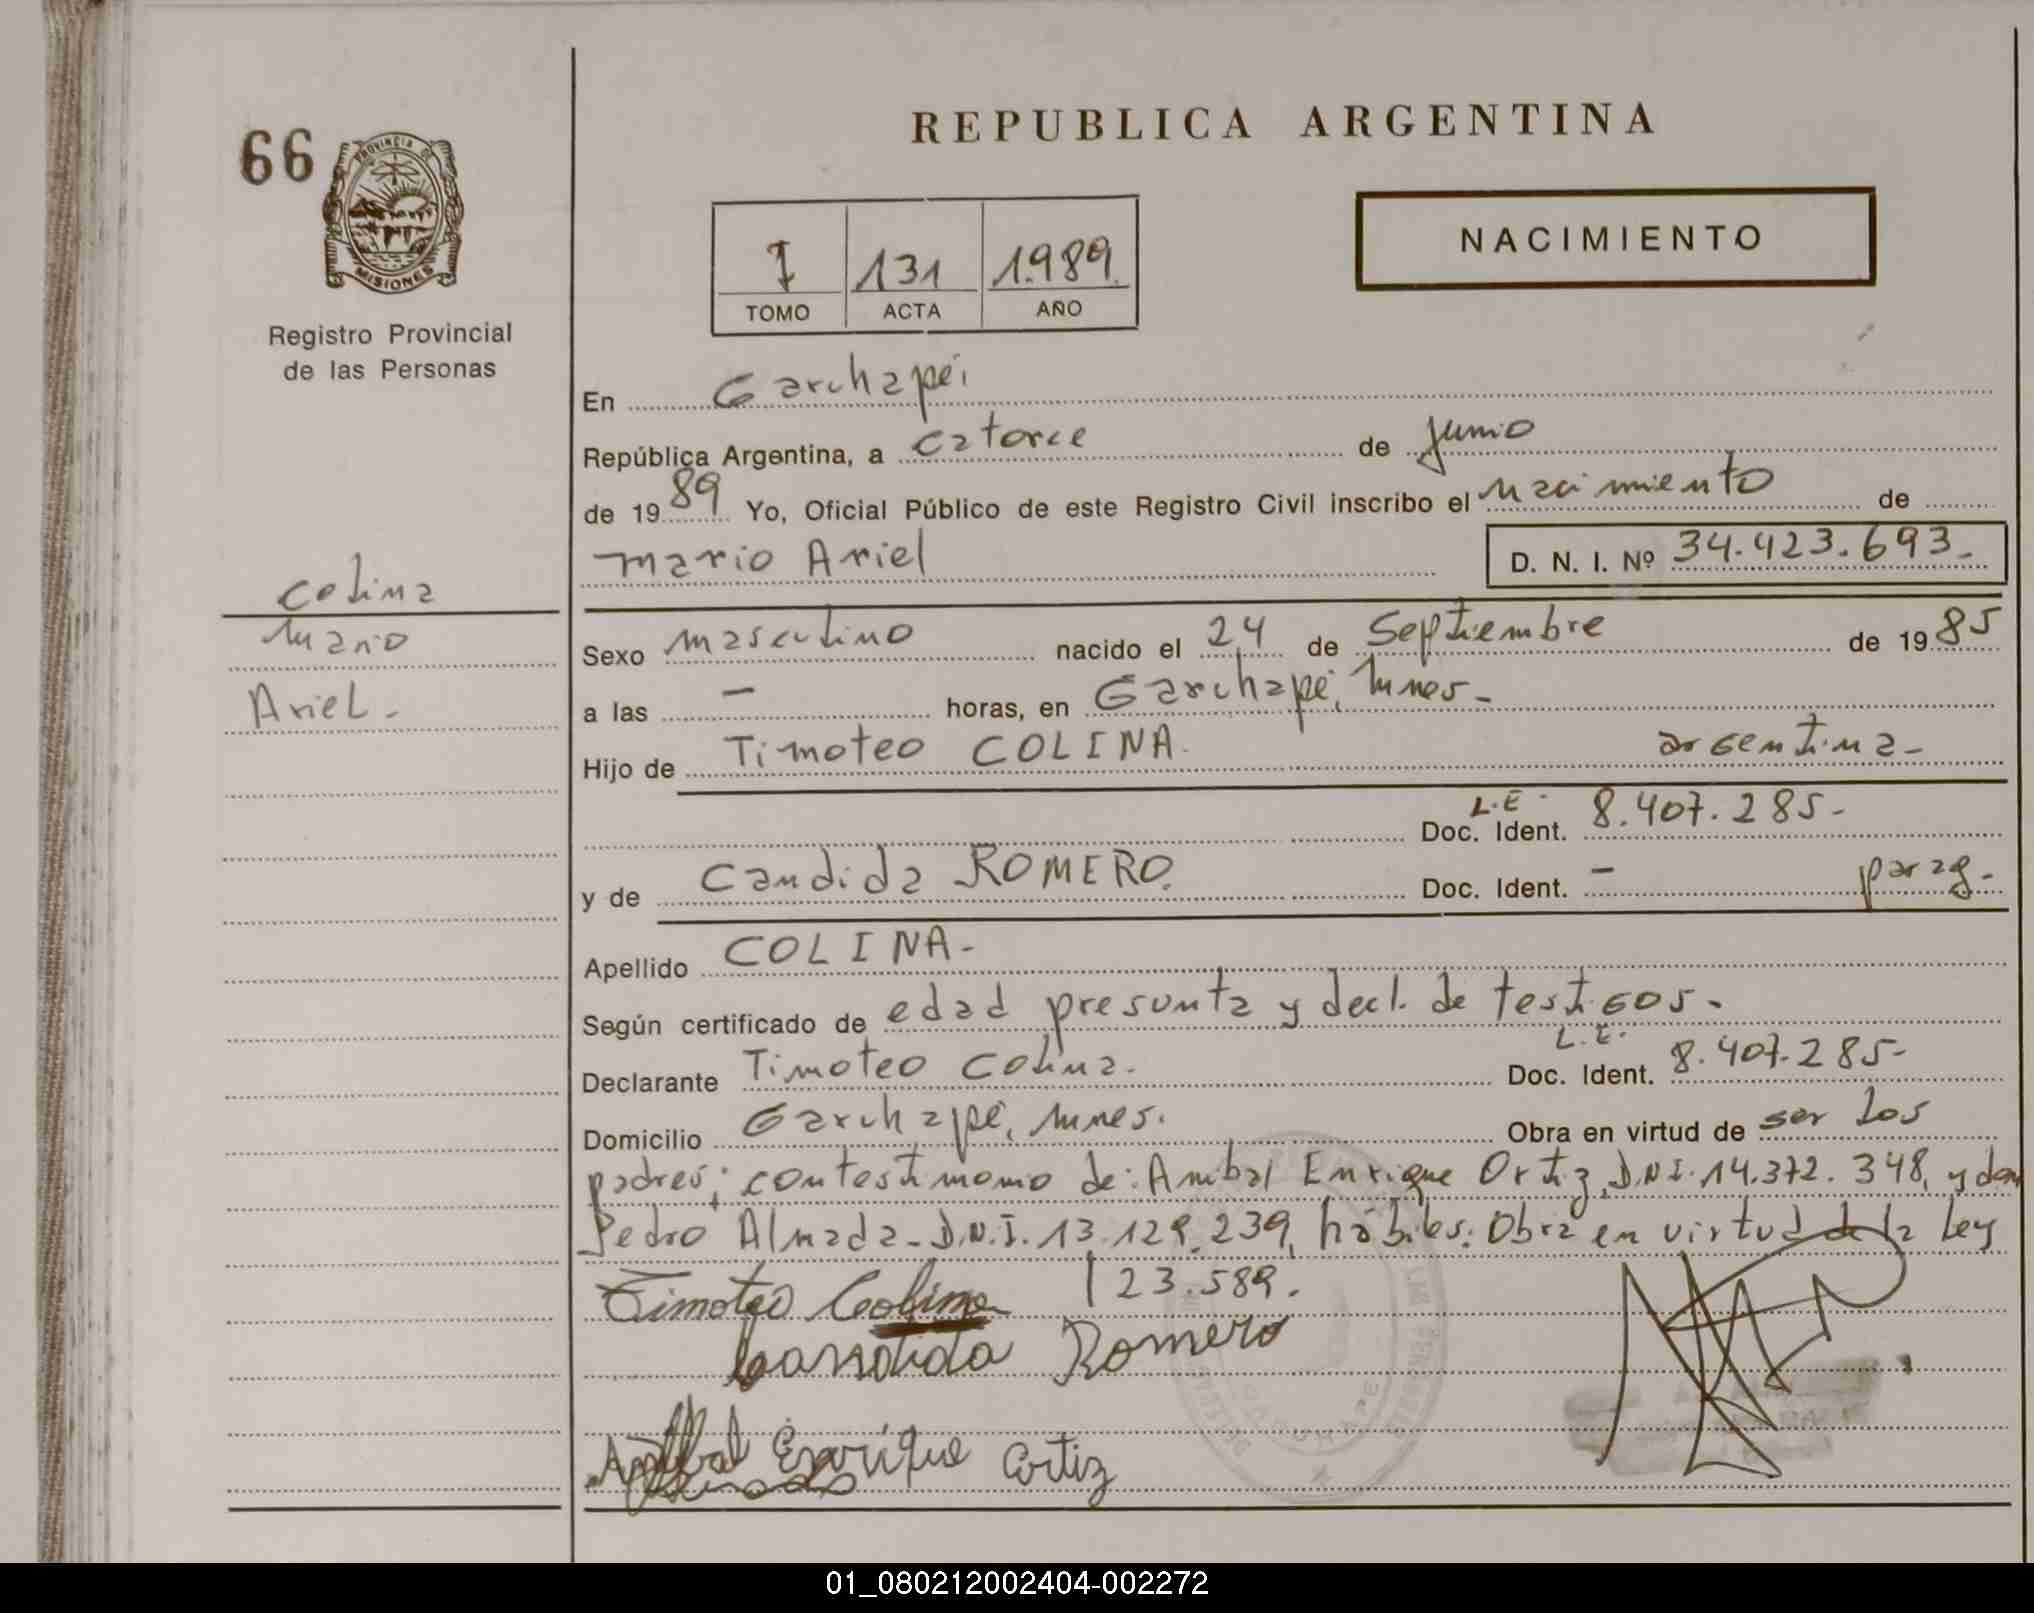 66
PROVINCIA DE
MISIONES
Registro Provincial
de las Personas
REPUBLICA ARGENTINA
NACIMIENTO
I 131 1.989.
TOMO ACTA AÑO
En Garchapé,
República Argentina, a catorce de Junio
de 1989 Yo, Oficial Público de este Registro Civil inscribo el nacimiento de
Mario Ariel D. N. I. Nº 34.423.693.-
Colina
Mario
Ariel.-
Sexo masculino nacido el 24 de Septiembre de 1985
a las — horas, en Garchapé, Mnes.-
Hijo de Timoteo COLINA. argentina-
L.E.- Doc. Ident. 8.407.285.-
y de Candida ROMERO. Doc. Ident. — parag.-
Apellido COLINA.-
Según certificado de edad presunta y decl. de testigos.
L.E.
Declarante Timoteo Colina. Doc. Ident. 8.407.285-
Domicilio Garchapé, Mnes. Obra en virtud de ser los
padres; con testimonio de: Anibal Enrique Ortiz, D.N.I. 14.372.348, y don
Pedro Almada- D.N.I. 13.129.239, hábiles. Obra en virtud de la Ley
23.589.
Timoteo Colina
Candida Romero
Anibal Enrique Ortiz
01_080212002404-002272